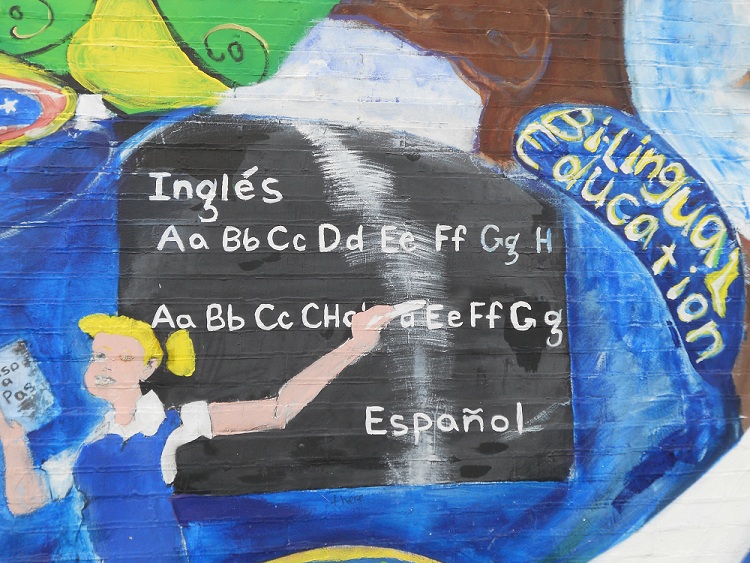 Inglés
Aa Bb Cc Dd Ee Ff Gg H
Aa Bb Cc Ee Ff Gg
Español
BiLinguaL
Education
a
Pas